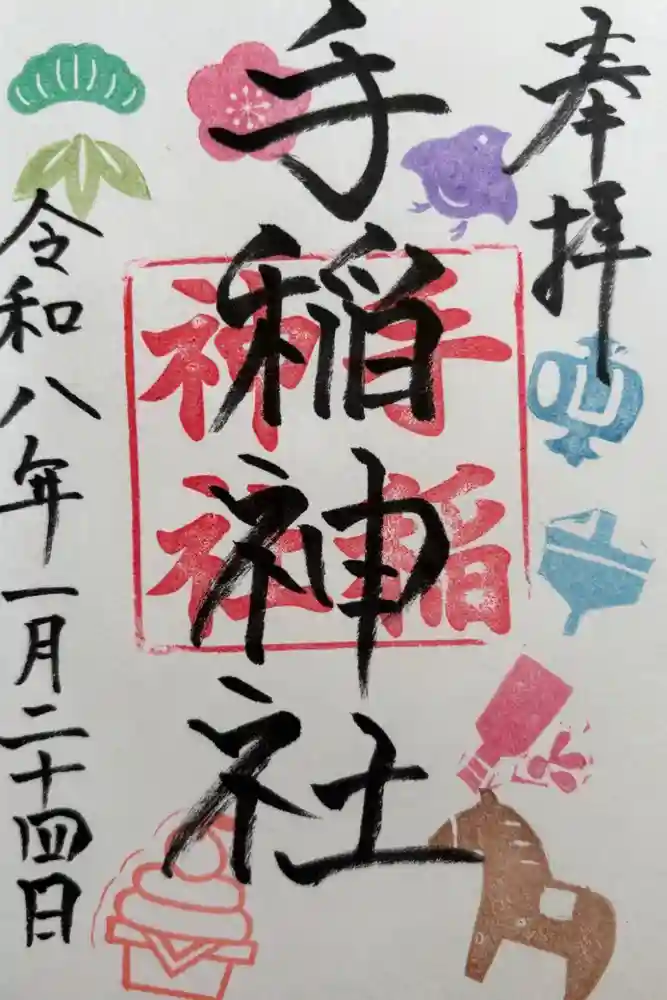 奉拝
手稲神社
手稲
神社
令和八年一月二十四日